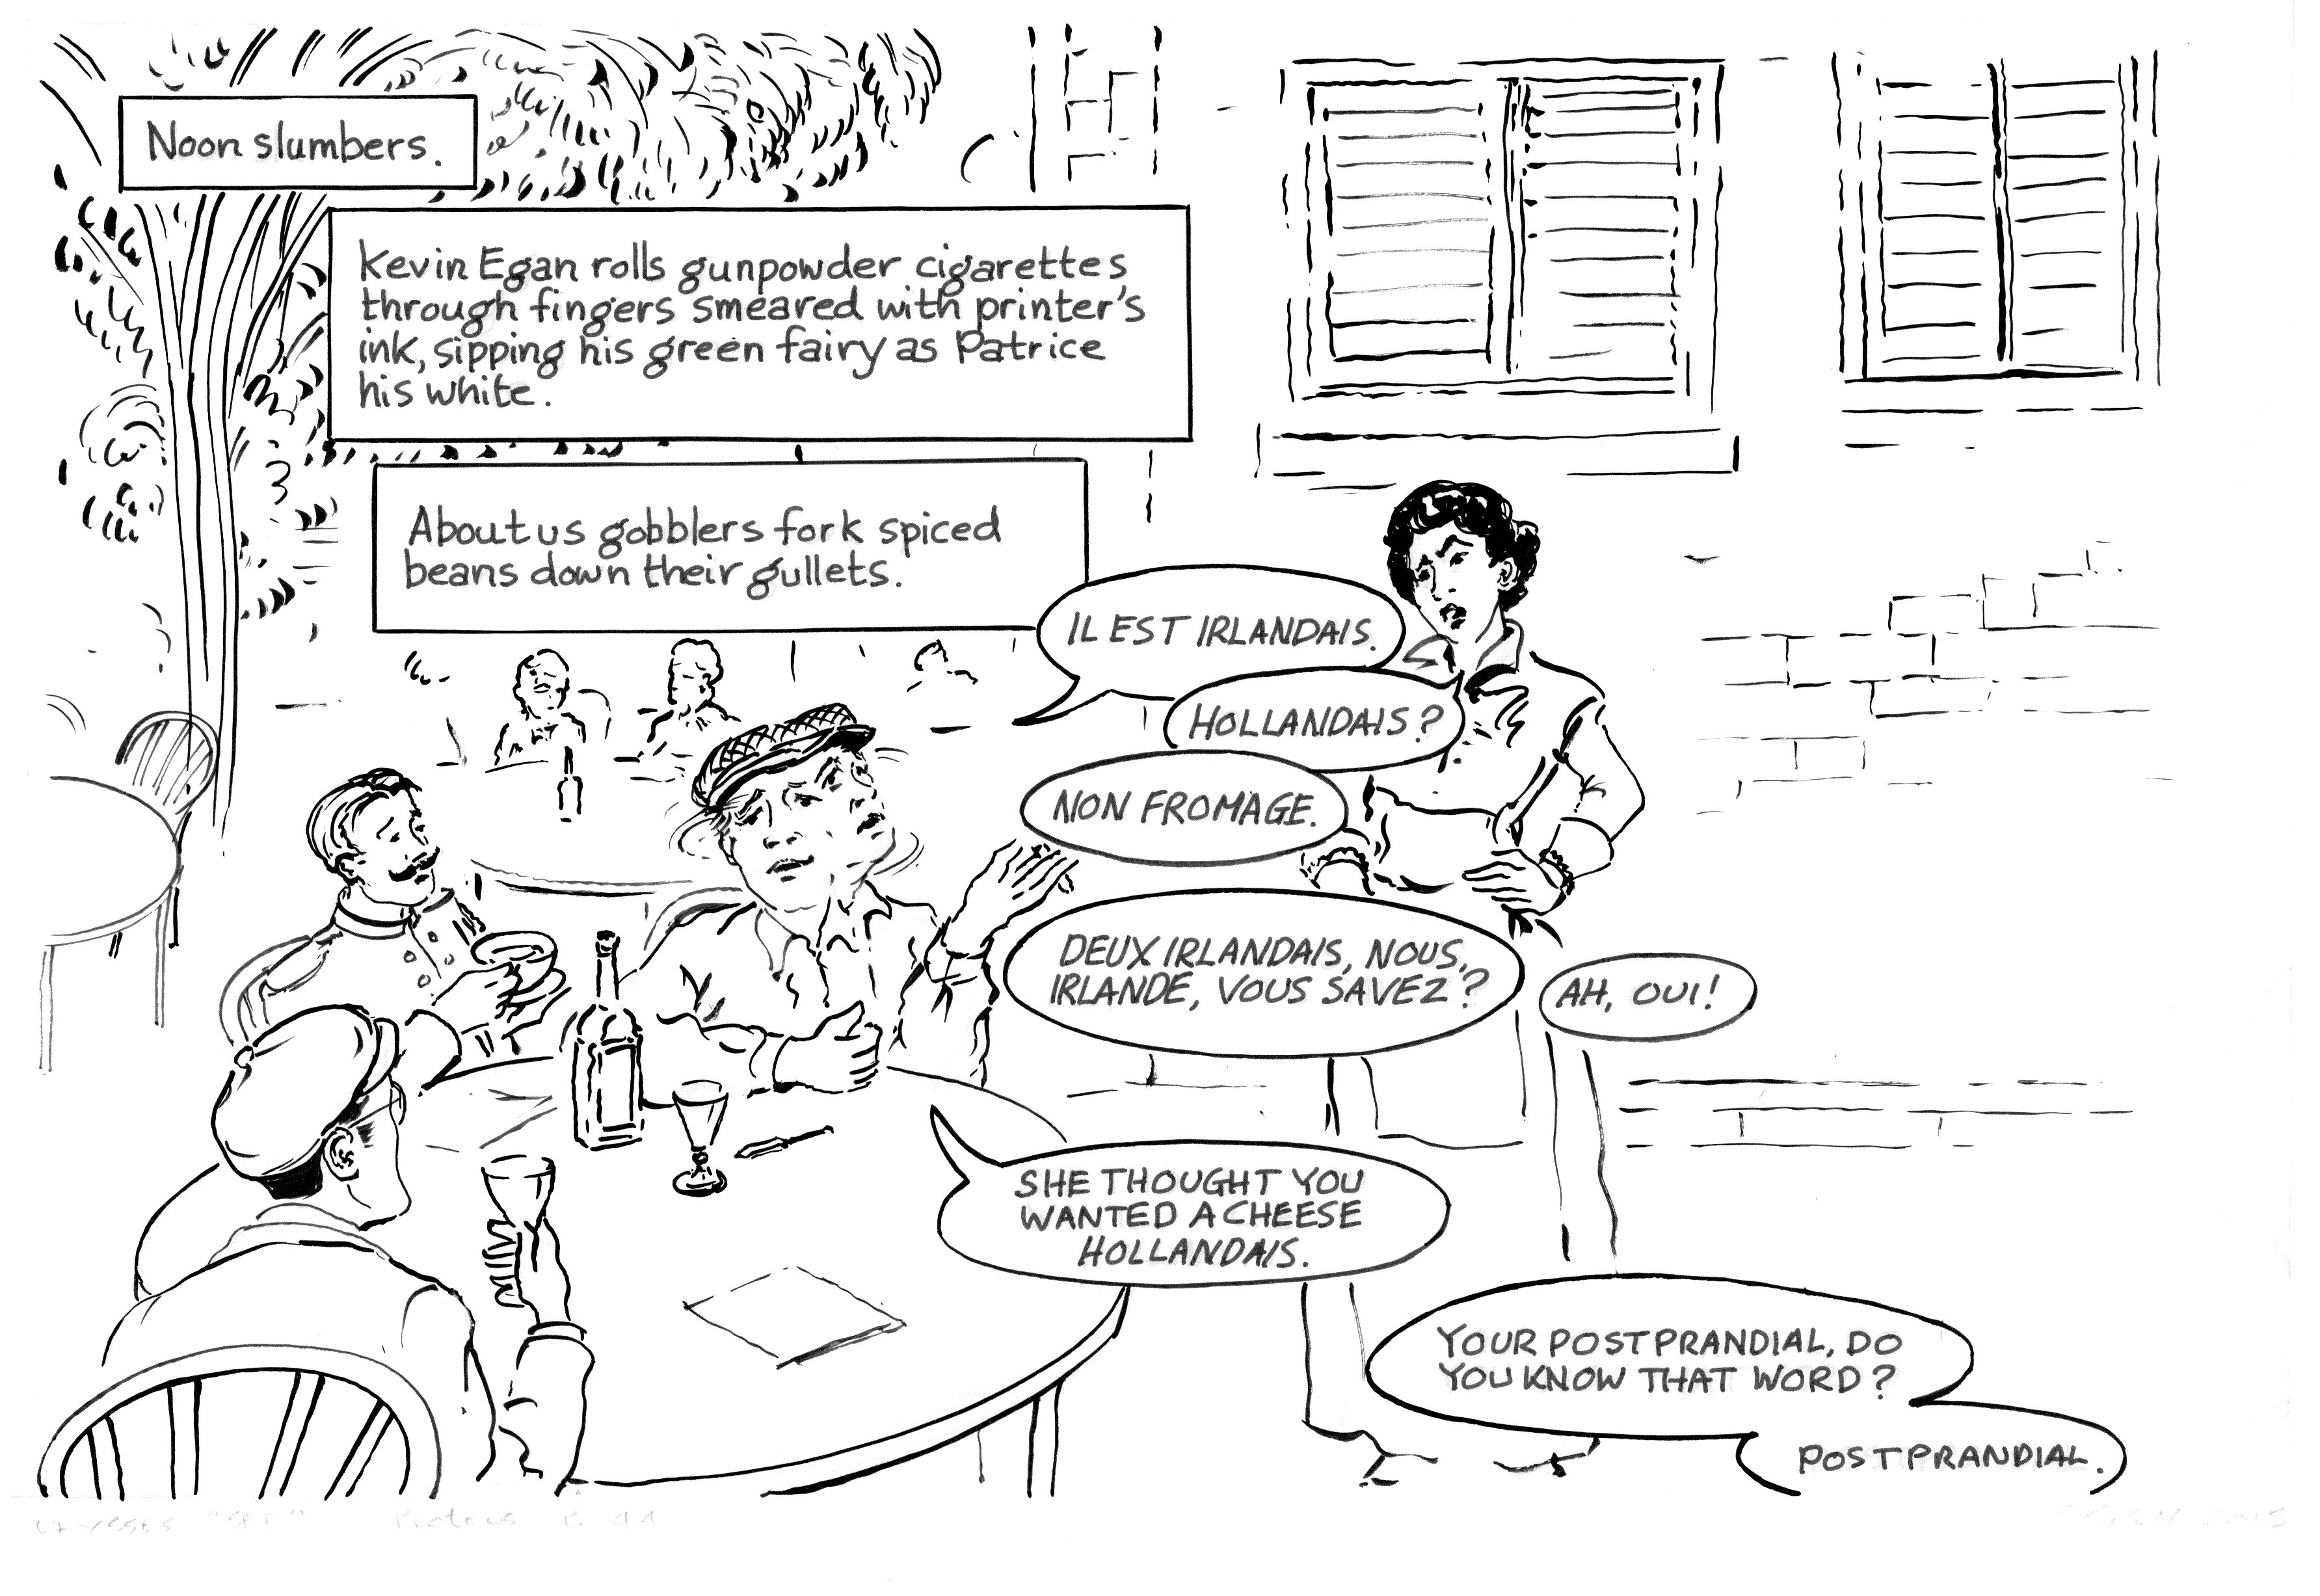 Noon slumbers.
Kevin Egan rolls gunpowder cigarettes
through fingers smeared with printer's
ink, sipping his green fairy as Patrice
his white.
About us gobblers fork spiced
beans down their gullets.
IL EST IRLANDAIS.
HOLLANDAIS?
NON FROMAGE.
DEUX IRLANDAIS, NOUS,
IRLANDE, VOUS SAVEZ?
AH, OUI!
SHE THOUGHT YOU
WANTED A CHEESE
HOLLANDAIS.
YOUR POSTPRANDIAL, DO
YOU KNOW THAT WORD?
POSTPRANDIAL.